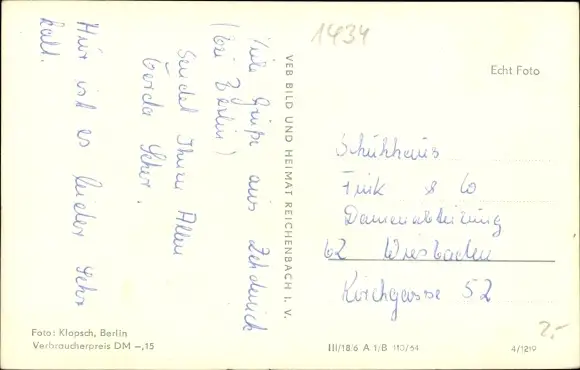 Viele Grüße aus Zehdenick
(bei Berlin)
Sendet Ihnen Allen
Gerda
Hier ist es leider sehr
kalt.
VEB BILD UND HEIMAT REICHENBACH I. V.
1434
Echt Foto
Schuhhaus
Fink & Co
Damenabteilung
62 Wiesbaden
Kirchgasse 52
2,-
Foto: Klopsch, Berlin
Verbraucherpreis DM -,15
III/18/6 A 1/B 110/64
4/1219